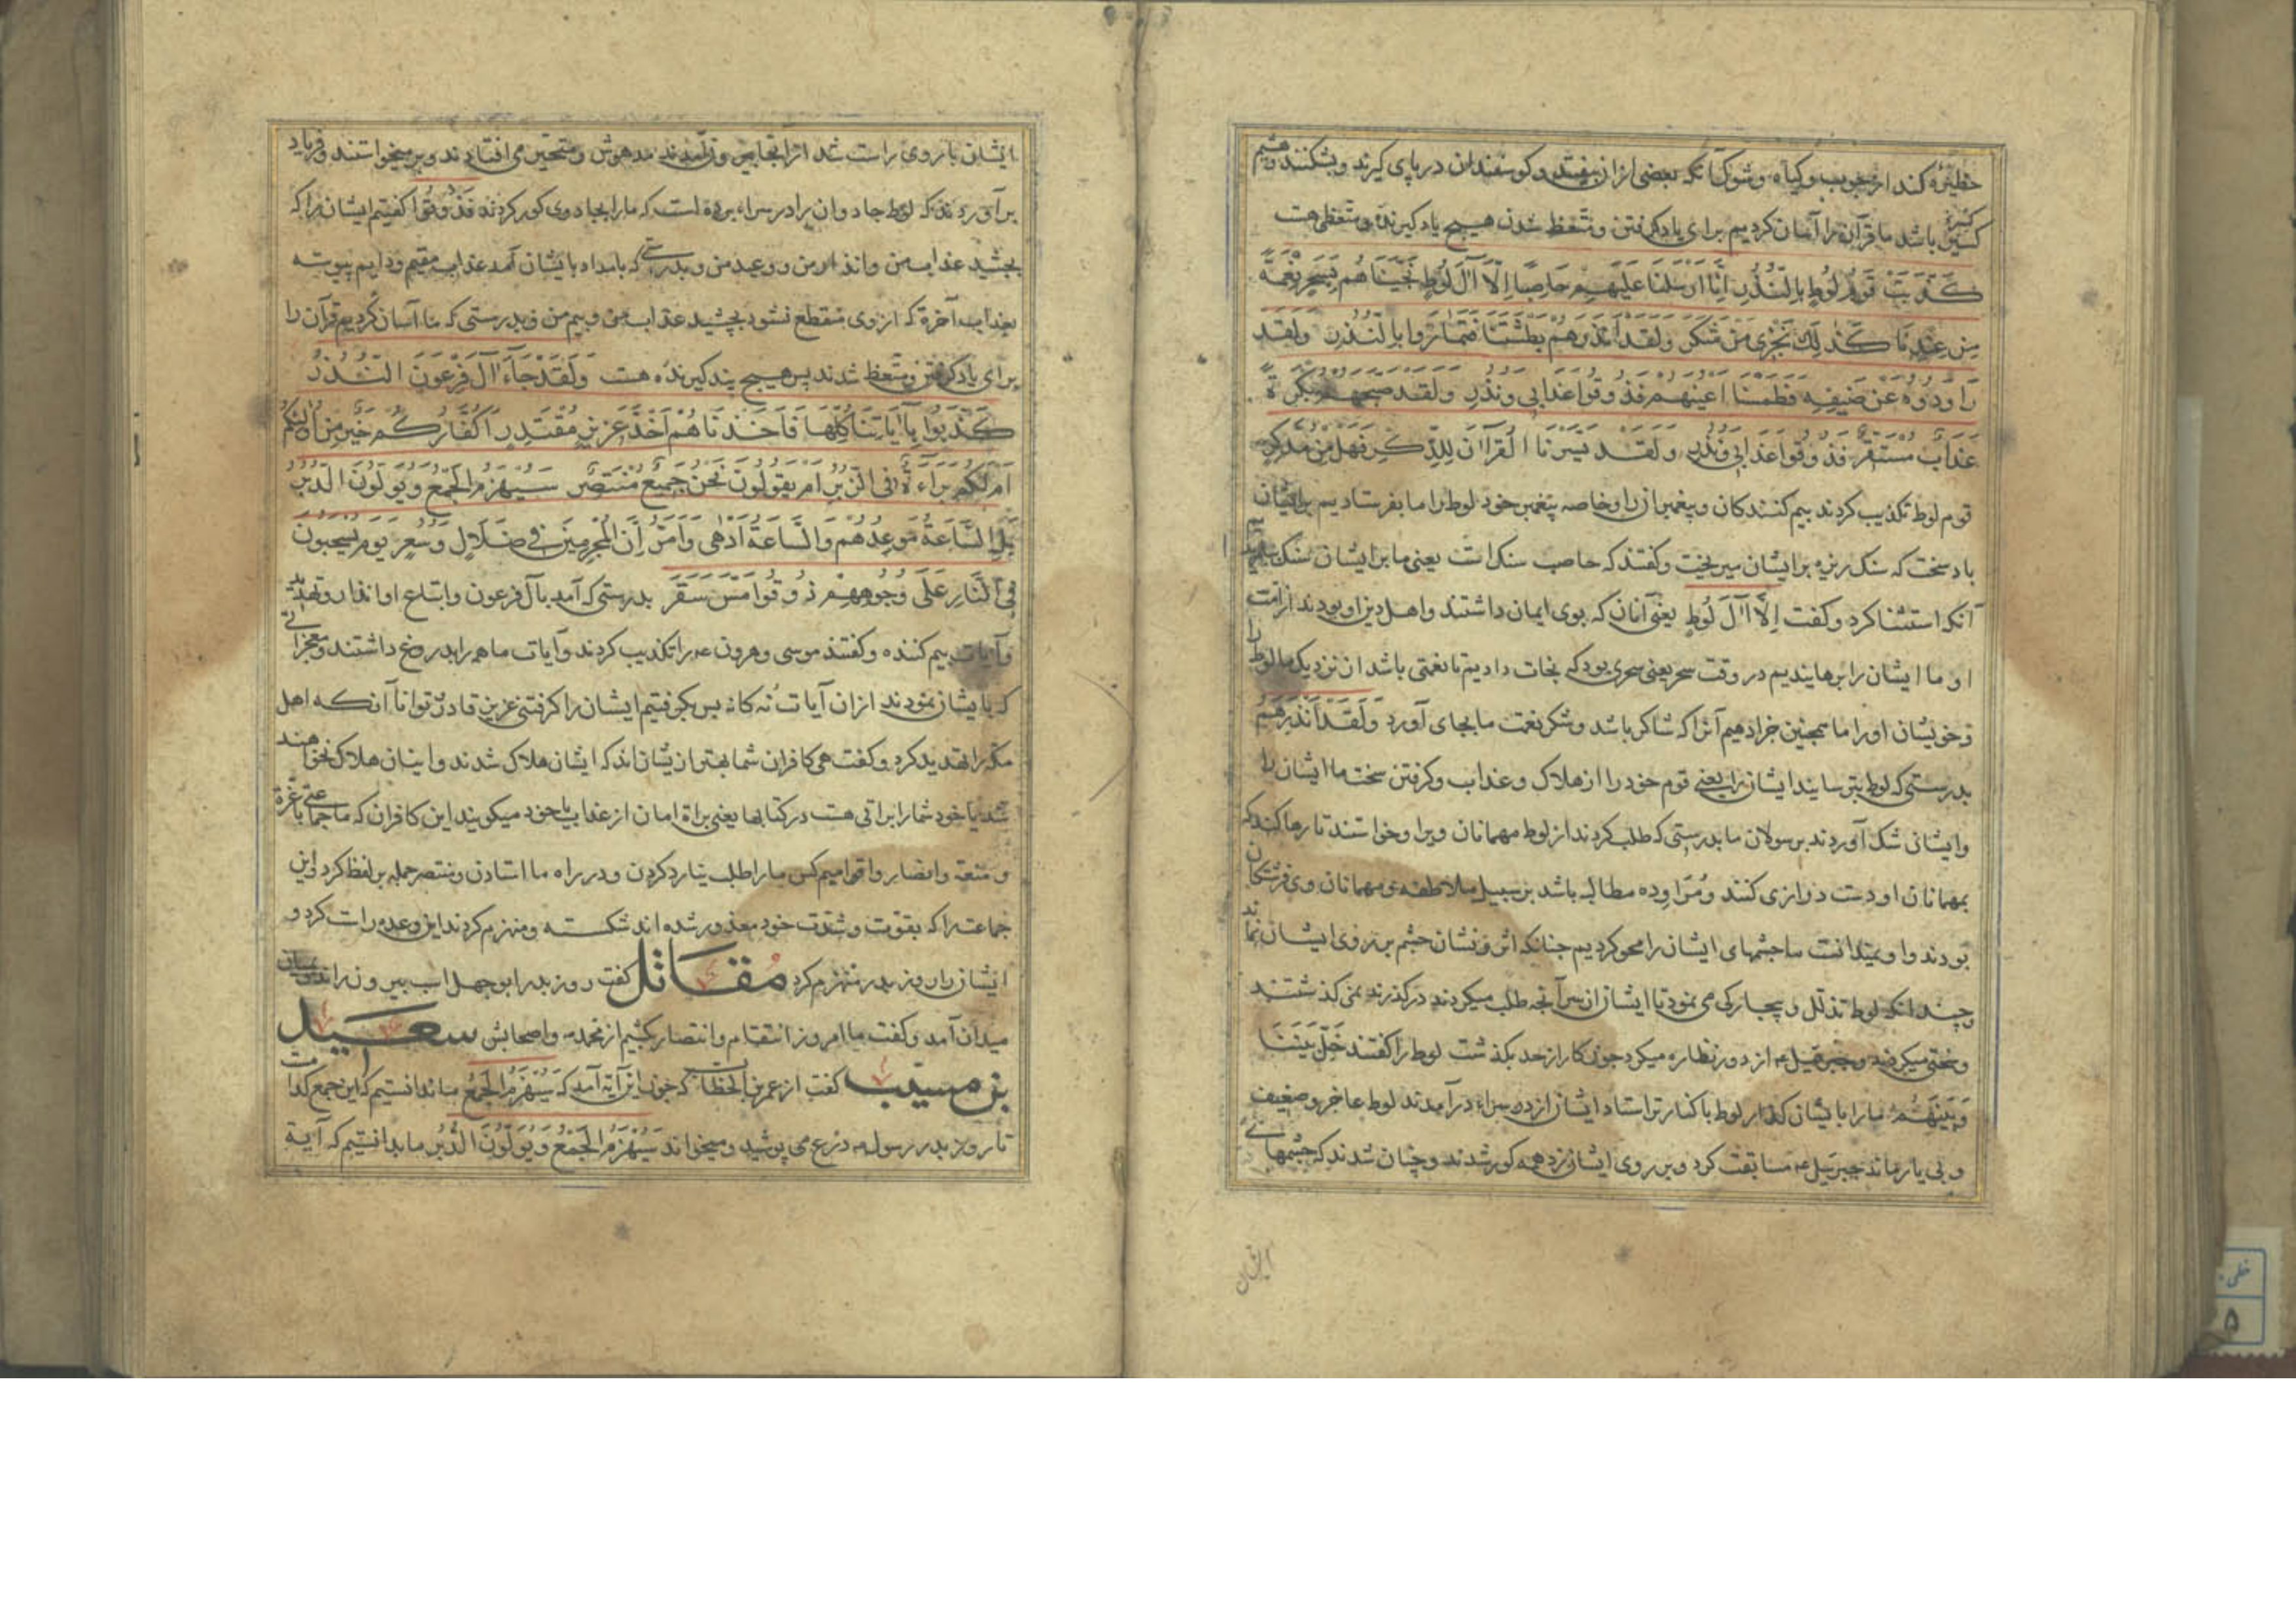 حظیره کند از چوب و گیاه و شوک آنکه بعضی از ان بیفتد و گوسفندان در پای گیرند و بشکنند هشیم
کسیر باشد ما قرآن را آسان کردیم برای یاد گرفتن و متعظ شدن هیچ یاد گیرنده و متعظی هست
كَذَّبَتْ قَوْمُ لُوطٍ بِالنُّذُرِ اِنَّا اَرْسَلْنَا عَلَيْهِمْ حَاصِبًا اِلَّا آلَ لُوطٍ نَجَّيْنَاهُمْ بِسَحَرٍ نِعْمَةً
مِنْ عِنْدِنَا كَذٰلِكَ نَجْزِي مَنْ شَكَرَ وَلَقَدْ اَنْذَرَهُمْ بَطْشَتَنَا فَتَمَارَوْا بِالنُّذُرِ وَلَقَدْ
رَاوَدُوهُ عَنْ ضَيْفِهِ فَطَمَسْنَا اَعْيُنَهُمْ فَذُوقُوا عَذَابِي وَنُذُرِ وَلَقَدْ صَبَّحَهُمْ بُكْرَةً
عَذَابٌ مُسْتَقِرٌّ فَذُوقُوا عَذَابِي وَنُذُرِ وَلَقَدْ يَسَّرْنَا الْقُرْآنَ لِلذِّكْرِ فَهَلْ مِنْ مُدَّكِرٍ
قوم لوط تکذیب کردند بیم کنندکان و پیغمبران را و خاصه پیغمبر خود لوط را ما بفرستادیم بر ایشان
باد سخت که سنک ریزه بر ایشان میریخت و کفتند که حاصب سنک است یعنی ما بر ایشان سنک
آنکه استثنا کرد و کفت اِلَّا آلَ لُوطٍ یعنی آنان که بوی ایمان داشتند و اهل دین او بودند از امت
او ما ایشان را برهانیدیم در وقت سحر یعنی سحری بود که نجات دادیم تا نعمتی باشد از نزدیک ما لوط را
و خویشان او را ما همچنین جزا دهیم آنرا که شاکر باشد و شکر نعمت ما بجای آورد وَلَقَدْ اَنْذَرَهُمْ
بدرستی که لوط بترسانید ایشان را یعنی قوم خود را از هلاک و عذاب و کرفتن سخت ما ایشان را
و ایشان شک آوردند برسولان ما بدرستی که طلب کردند از لوط مهمانان ویرا و خواستند تا رها کند که
بمهمانان او دست درازی کنند و مُرَاوده مطالبه باشد بر سبیل ملاطفه و مهمانان وی فرشتکان
بودند و او نمیدانست ما چشمهای ایشان را محو کردیم چنانکه اثر و نشان چشم بر روی ایشان نماند
چندانکه لوط تذلل و بیچارکی می نمود تا ایشان از سر آنچه طلب میکردند درکذرند نمی کذشتند
و سختی میکردند و جبرئیل ع از دور نظاره میکرد چون کار از حد بکذشت لوط را کفتند خَلِّ بَيْنَنَا
وَبَيْنَهُمْ ما را با ایشان کذار لوط با کنارتر استاد ایشان از در سرای درآمدند لوط عاجز و ضعیف
و بی یار ماند جبرئیل ع مسابقت کرد و بر روی ایشان زد همه کور شدند و چنان شدند که چشمهای
ایشان
ایشان با روی راست شد از آنجا بیرون آمدند مدهوش و متحیر می افتادند و بر میخواستند و فریاد
برآوردند که لوط جادوان را در سراء برده است که ما را بجادوی کور کردند فَذُوقُوا کفتیم ایشان را که
بچشید عذاب من و انذار من و وعید من و بدرستی که بامداد با ایشان آمد عذاب مقیم و دایم پیوسته
بعذاب آخرة که از وی منقطع نشود بچشید عذاب من و بیم من و بدرستی که ما آسان کردیم قرآن را
برای یاد کرفتن و متعظ شدند پس هیچ پند کیرنده هست وَلَقَدْ جَاءَ آلَ فِرْعَوْنَ النُّذُرُ
كَذَّبُوا بِآيَاتِنَا كُلِّهَا فَاَخَذْنَاهُمْ اَخْذَ عَزِيزٍ مُقْتَدِرٍ اَكُفَّارُكُمْ خَيْرٌ مِنْ اُولٰئِكُمْ
اَمْ لَكُمْ بَرَاءَةٌ فِي الزُّبُرِ اَمْ يَقُولُونَ نَحْنُ جَمِيعٌ مُنْتَصِرٌ سَيُهْزَمُ الْجَمْعُ وَيُوَلُّونَ الدُّبُرَ
بَلِ السَّاعَةُ مَوْعِدُهُمْ وَالسَّاعَةُ اَدْهٰى وَاَمَرُّ اِنَّ الْمُجْرِمِينَ فِي ضَلَالٍ وَسُعُرٍ يَوْمَ يُسْحَبُونَ
فِي النَّارِ عَلٰى وُجُوهِهِمْ ذُوقُوا مَسَّ سَقَرَ بدرستی که آمد بآل فرعون و اتباع او انذار و تهدید
و آیات بیم کننده و کفتند موسی و هرون ع را تکذیب کردند و آیات ما همه را بدروغ داشتند و معجزاتی
که با یشان نمودند از ان آیات نُه کانه پس بکرفتیم ایشان را کرفتنی عزیز قادر توانا آنکه اهل
مکه را تهدید کرد و کفت هی کافران شما بهتر از یشان اند که ایشان هلاک شدند و اینان هلاک نخواهند
شد یا خود شما را براتی هست در کتابها یعنی براة امان از عذاب یا خود میکویند این کافران که ما جماعتی با غرة
و منعة و انصار و اقوامیم کس ما را طلب نیارد کردن و در راه ما استادن و منتصر حمله بر لفظ کرد این
جماعت را که بقوت و شدت خود مغرور شده اند شکسته و منهزم کردند این وعده راست کرد و
ایشان را روز بدر منهزم کرد مُقَاتل کفت روز بدر ابوجهل اسب بیرون راند
میدان آمد و کفت ما امروز انتقام و انتصار کشیم از محمد و اصحابش سعید
بن مسیب کفت از عمر بن الخطاب که چون این آیة آمد که سَيُهْزَمُ الْجَمْعُ ما ندانستیم که این جمع کدامست
تا روز بدر رسول درع می پوشید و میخواند سَيُهْزَمُ الْجَمْعُ وَيُوَلُّونَ الدُّبُرَ ما بدانستیم که آیة